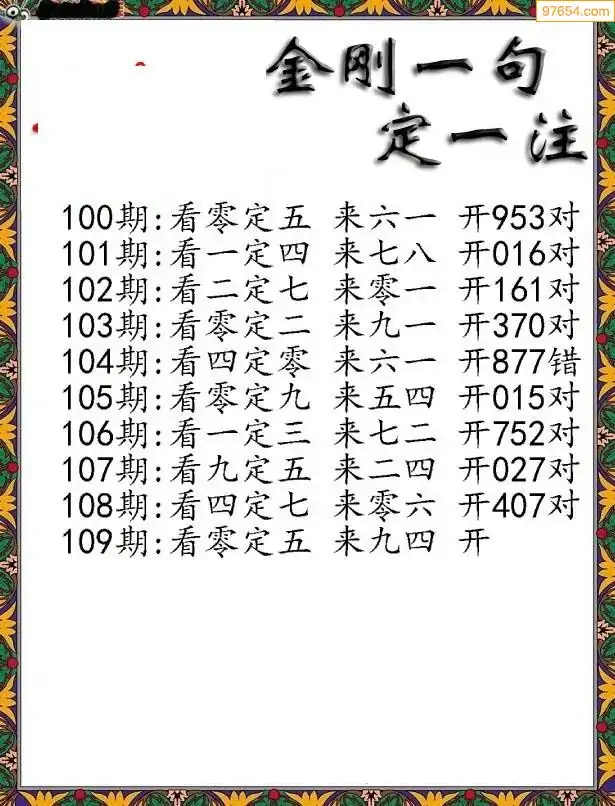 97654.com
金刚一句
定一注
100期:看零定五 来六一 开953对
101期:看一定四 来七八 开016对
102期:看二定七 来零一 开161对
103期:看零定二 来九一 开370对
104期:看四定零 来六一 开877错
105期:看零定九 来五四 开015对
106期:看一定三 来七二 开752对
107期:看九定五 来二四 开027对
108期:看四定七 来零六 开407对
109期:看零定五 来九四 开